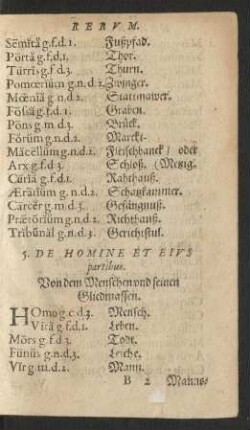 RERVM.
Sēmĭtă g.f.d.1. Fußpfad.
Pŏrtă g.f.d.1. Thor.
Tŭrris g.f.d.3. Thurn.
Pomœrĭum g.n.d.2. Zwinger.
Mœnĭă g.n.d.2. Stattmawer.
Fŏssă g.f.d.1. Graben.
Pōns g.m.d.3. Brück.
Fŏrum g.n.d.2. Marckt.
Măcēllum g.n.d.2. Fleischbanck/ oder
Arx g.f.d.3. Schloß. (Metzig.
Cūrĭă g.f.d.1. Rahthauß.
Ærārĭum g.n.d.2. Schatzkammer.
Cārcĕr g.m.d.3. Gefängnuß.
Prætōrĭum g.n.d.2. Richthauß.
Trĭbūnăl g.n.d.3. Gerichtstul.
5. DE HOMINE ET EIVS
partibus.
Von dem Menschen vnd seinen
Gliedmassen.
HOmo g.c.d.3. Mensch.
Vītă g.f.d.1. Leben.
Mŏrs g.f.d.3. Todt.
Fūnŭs g.n.d.3. Leiche.
Vĭr g.m.d.2. Mann.
B 2 Manns-